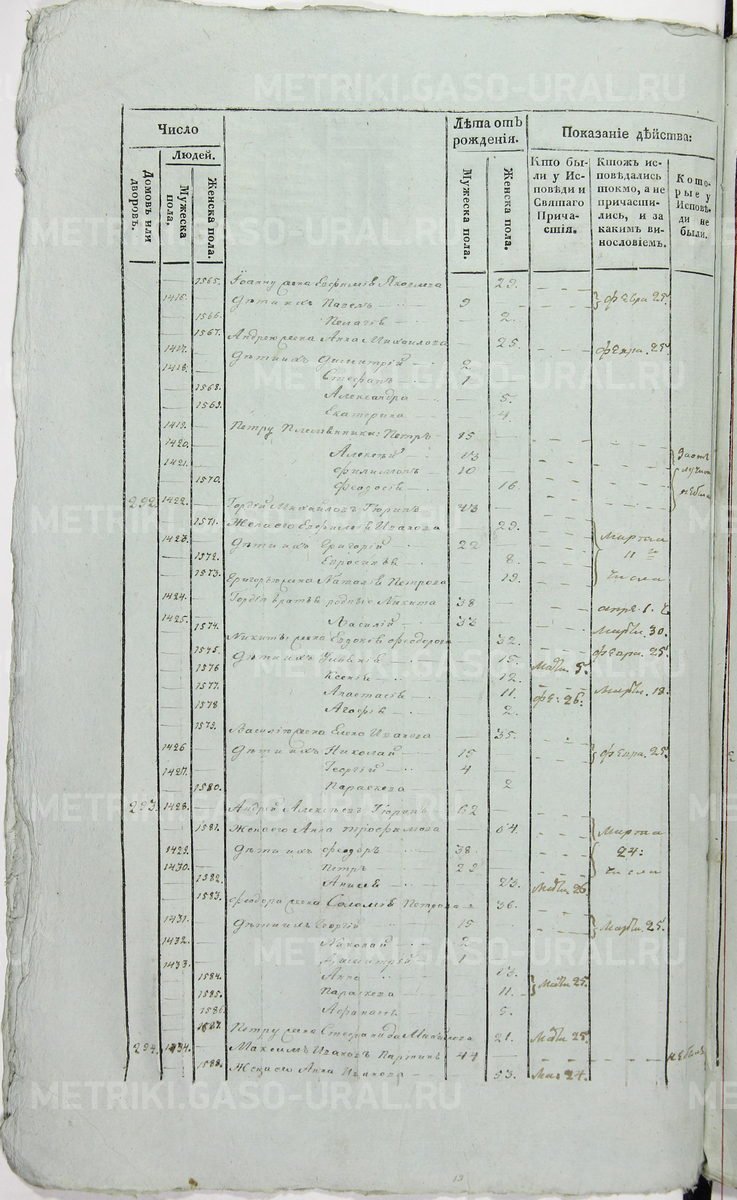 Число
Людей.
Домовъ или дворовъ.
Мужеска пола,
Женска пола.
Лѣта отъ рожденія.
Мужеска пола.
Женска пола.
Показаніе дѣйства:
Кто были у Исповѣди и Святаго Причастія.
Ктожъ исповѣдались токмо, а не причастились, и за какимъ винословіемъ.
Которые у Исповѣди не были.
1565. Іоанну жена Евфимія Яковлева 29.
1416. Дѣти ихъ Павелъ 9 февра 25.
1566. Пелагія 2.
1567. Андрею жена Анна Михайлова 25.
1417. Дѣти ихъ Димитрій 2 февра. 25
1418. Стефанъ 1
1568. Александра 5.
1569. Екатерина 4.
1419. Петру племянники: Петръ 15
1420. Алексѣй 13
1421. Филимонъ 10
1570. Феодосія 16
292. 1422. Гордѣй Михайловъ Тюринъ 43
1571. Жена его Евфимія Иванова 29.
1423. Дѣти ихъ Григорій 22 Марта
1572. Евросинья 8. 11
1573. Григорью жена Наталія Петрова 19. числа
1424. Гордія братья родные Никита 38 апре. 1.
1425. Василій 33
1574. Никиты жена Евдокія Феодорова 32. Марта 30.
1575. Дѣти ихъ 15. февра. 25.
1576 Ксенія 12.
1577. Анастасія 11. фе. 26. 18.
1578 Агафія 2.
1579. Василію жена Елена Иванова 35.
1426 Дѣти ихъ Николай 15 февра. 25.
1427. Георгій 4
1580. Параскева 2
293. 1428. Андрей Алексѣевъ Тюринъ 62
1581. Жена его Анна Трофимова 64. Марта
1429. Дѣти ихъ Феодоръ 38. 24:
1430. Петръ 29 числа
1582. Анисія 23. 26
1583. Феодора жена Соломія Петрова 36.
1431. Дѣти ихъ Георгій 15 25.
1432. Николай 3
1433. Димитрій 1
1584. Анна 13.
1585. Параскева 11. 25.
1586. 5.
1587. Петру жена Стефанида 21. 25.
294. 1434. Максимъ Ивановъ 44 не былъ
1588. Жена его Анна Иванова 53. 24.
METRIKI.GASO-URAL.RU